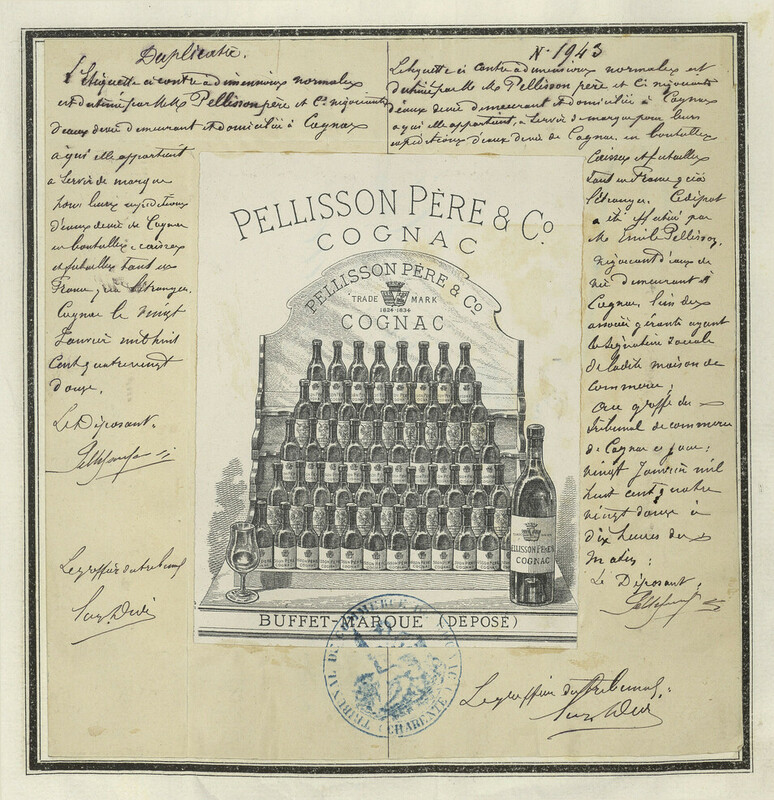 Duplicata.
l'Etiquette ci contre a dimensions normales
est destinée par MM. Pellisson père et Cie négociants
d'eaux de vie demeurant et domiciliés à Cognac
a qui elle appartient
a servir de marque
pour leurs expéditions
d'eaux de vie de Cognac
en bouteilles, caisses
et futailles tant en
France, qu'à l'étranger.
Cognac le vingt
Janvier mil huit
cent quatre vingt
douze.
Le Déposant.
Le greffier du tribunal
N° 1943
L'étiquette ci contre a dimensions normales est
destinée par MM. Pellisson père et Cie négociants
d'eaux de vie demeurant et domiciliés à Cognac
a qui elle appartient, a servir de marque pour leurs
expéditions d'eaux de vie de Cognac en bouteilles
Caisses et futailles
tant en France qu'à
l'étranger. Ce dépot
a été effectué par
M. Emile Pellisson,
négociant d'eaux de
vie demeurant à
Cognac, l'un des
associés gérants ayant
la signature sociale
de ladite maison de
commerce;
au greffe du
Tribunal de commerce
de Cognac ce jour;
vingt Janvier mil
huit cent quatre
vingt douze à
dix heures du
matin;
Le Déposant,
Le greffier du tribunal.
PELLISSON PÈRE & Co.
COGNAC
PELLISSON PÈRE & Co
TRADE MARK
1824-1834
COGNAC
PELLISSON PÈRE & Co
COGNAC
BUFFET-MARQUE (DÉPOSÉ)
TRIBUNAL DE COMMERCE DE COGNAC (CHARENTE)